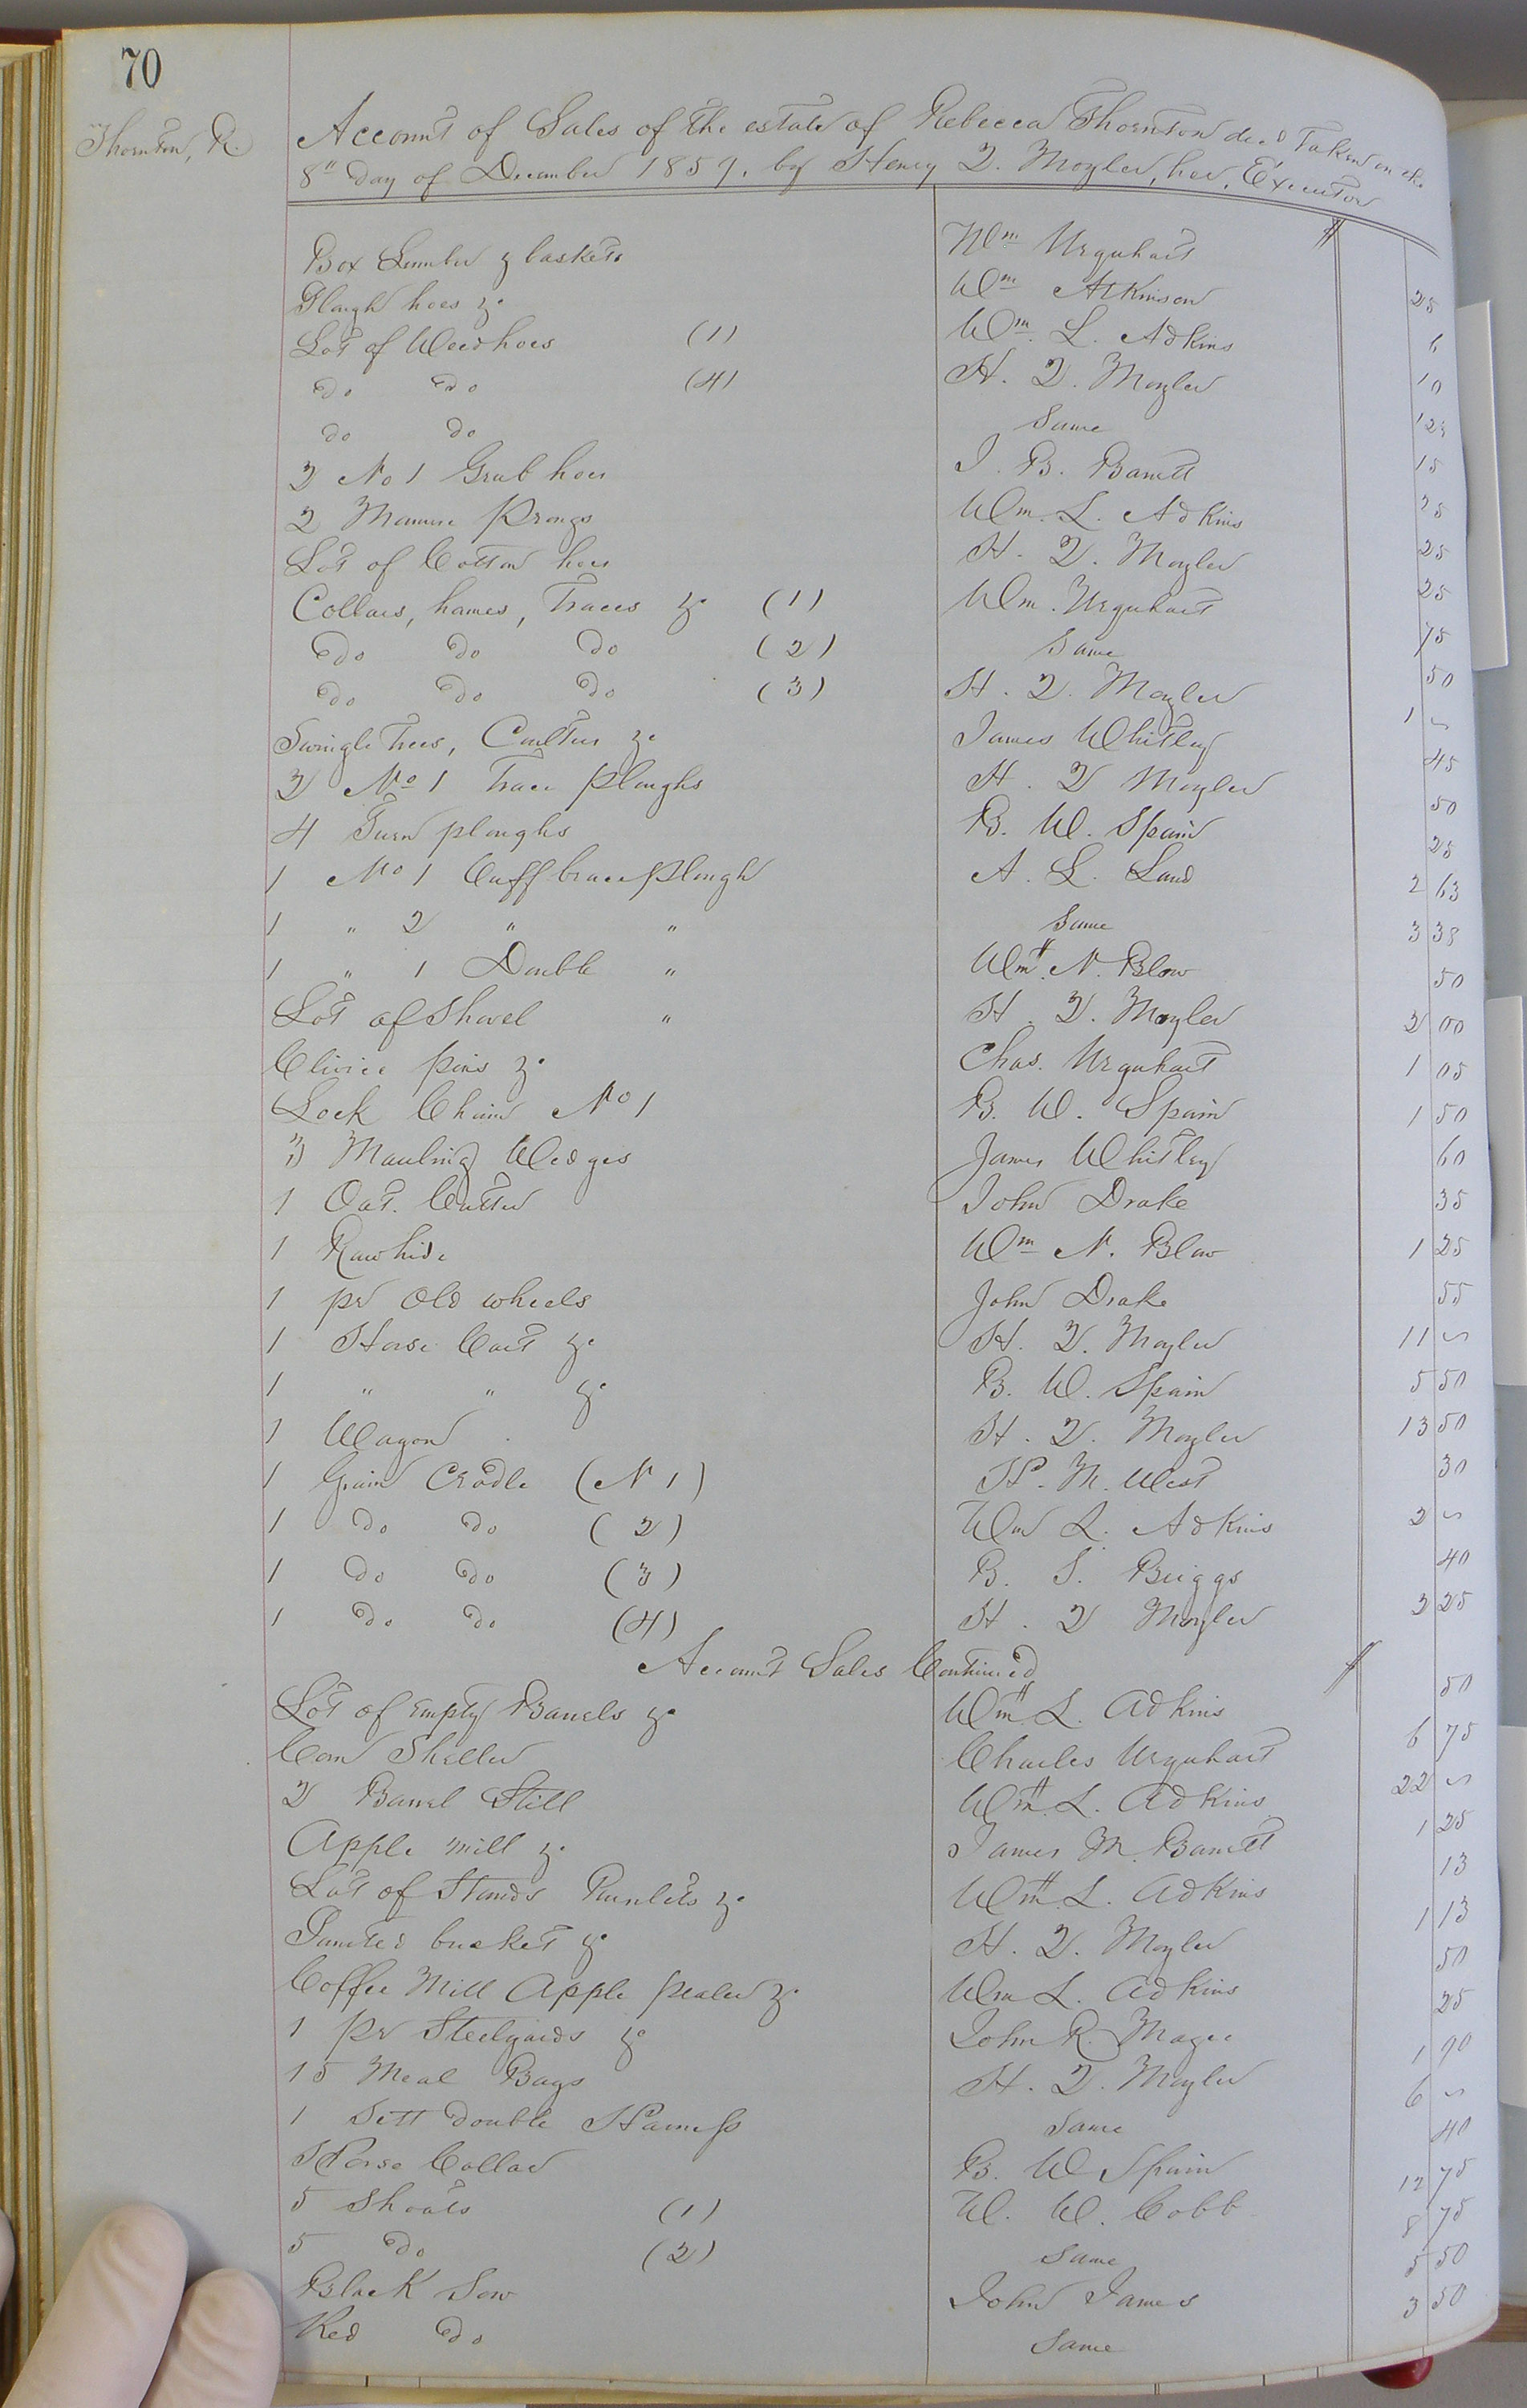 70
Thornton, R.
Account of Sales of the estate of Rebecca Thornton dec.d Taken on the
8" day of December 1859, by Henry D. Moyler, her, Executor
Box Lumber & baskets Wm Urquhart 25
Plough hoes &c Wm Atkinson 6
Lot of Weedhoes (1) Wm. L. Adkins 10
do do (4) H. D. Moyler 12½
do do Same 15
2 No 1 Grub hoes J. B. Barrett 25
2 Manure Prongs Wm. L. Adkins 25
Lot of Cotton hoes H. D. Moyler 25
Collars, hames, Traces &c (1) Wm. Urquhart 75
do do do (2) Same 50
do do do (3) H. D. Moyler 1 ~
Swingle Trees, Coulters &c James Whitley 45
2 No 1 Trace Ploughs H. D Moyler 50
4 Turn ploughs B. W. Spain 25
1 No 1 Cuff brace Plough A. L. Land 2 63
1 " 2 " " Same 3 38
1 " 1 Double " Wm. N. Blow 50
Lot of Shovel " H. D. Moyler 2 00
Clivice pins &c Chas. Urquhart 1 05
Lock Chain No 1 B. W. Spain 1 50
3 Mauling Wedges James Whitley 60
1 Oat. Cutter John Drake 35
1 Rawhide Wm N. Blow 1 25
1 pr Old wheels John Drake 55
1 Horse Cart &c H. D. Moyler 11 ~
1 " " &c B. W. Spain 5 50
1 Wagon H. D. Moyler 13 50
1 Grain Cradle (N 1) H. M. West 30
1 do do (2) Wm L. Adkins 2 ~
1 do do (3) B. S. Briggs 40
1 do do (4) H. D Moyler 3 25
Account Sales Continued
Lot of Empty Barrels &c Wm. L. Adkins 50
Corn Sheller Charles Urquhart 6 75
2 Barrel Still Wm. L. Adkins 22 ~
Apple Mill &c James M. Barrett 1 25
Lot of Stands Runlets &c Wm. L. Adkins 13
Painted bucket &c H. D. Moyler 1 13
Coffee Mill Apple pealer &c Wm L. Adkins 50
1 pr Steelyards &c John R. Magee 25
15 Meal Bags H. D. Moyler 1 90
1 Sett Double Harness Same 6 ~
Horse Collar B. W Spain 40
5 Shoats (1) W. W. Cobb 12 75
5 do (2) Same 8 75
Black Sow John James 5 50
Red do Same 3 50